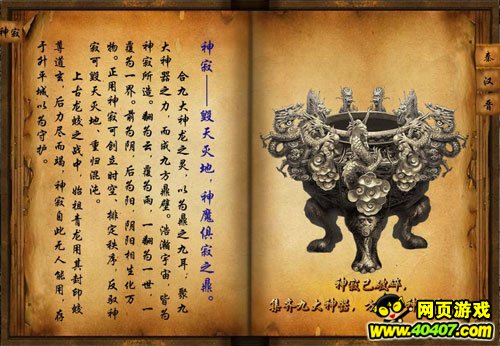 神寂
神寂——毁天灭地，神魔俱寂之鼎。
合九大神龙之灵，以为鼎之九耳，聚九
大神器之力，而成九方鼎壁。浩瀚宇宙，皆为
神寂所造。翻为云，覆为雨，一翻为一世，一
覆为一界。前为阴，后为阳，阴阳相生化万
物。正用神寂可创立时空、排定秩序，反驭神
寂可毁天灭地、重归混沌。
上古龙蛟之战中，始祖青龙用其封印蛟
尊道玄，后力尽而竭，神寂自此无人能用，存
于升平城以为守护。
秦汉晋
神寂已破碎，
集齐九大神器，方
网页游戏
www.40407.com